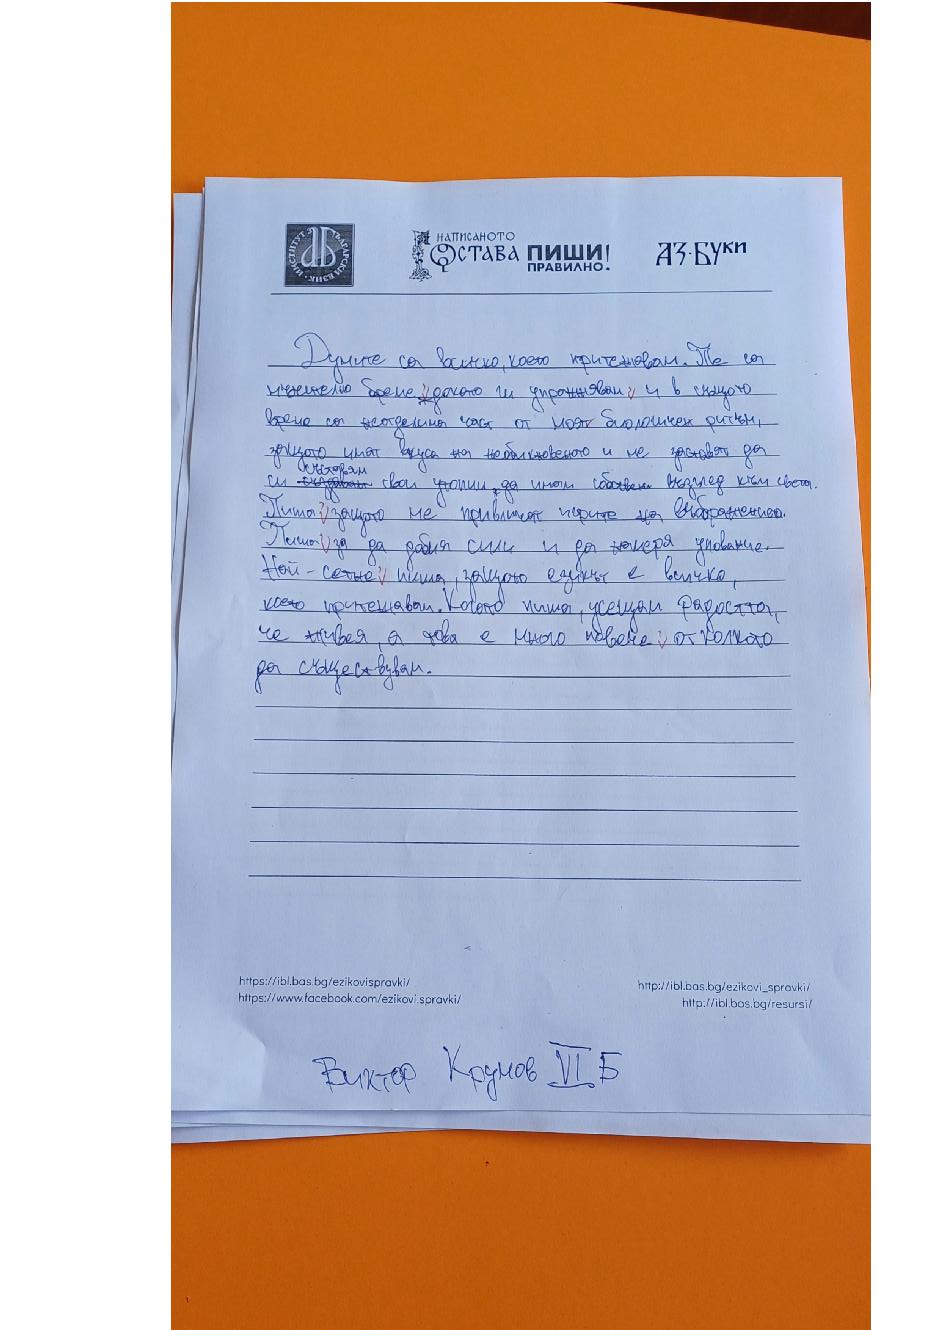 ИНСТИТУТ ЗА БЪЛГАРСКИ ЕЗИК
НАПИСАНОТО
ОСТАВА ПИШИ!
ПРАВИЛНО.
АЗ·БУКИ
Думите са всичко, което притежавам. Те са
нежно бреме, докато ги упражнявам, и в същото
време са неотделима част от моят биологичен ритъм,
защото имат вкуса на необикновеното и ме заставят да
сътворявам
си свои утопии, да имам собствен възглед към света.
Пиша, защото ме привличат игрите на въображението.
Пиша, за да добия сили и да намеря упование.
Най-сетне, пиша, защото езикът е всичко,
което притежавам. Когато пиша, усещам радостта,
че живея, а това е много повече, отколкото
да съществувам.
https://ibl.bas.bg/ezikovispravki/
https://www.facebook.com/ezikovi.spravki/
http://ibl.bas.bg/ezikovi_spravki/
http://ibl.bas.bg/resursi/
Виктор Крумов VI Б